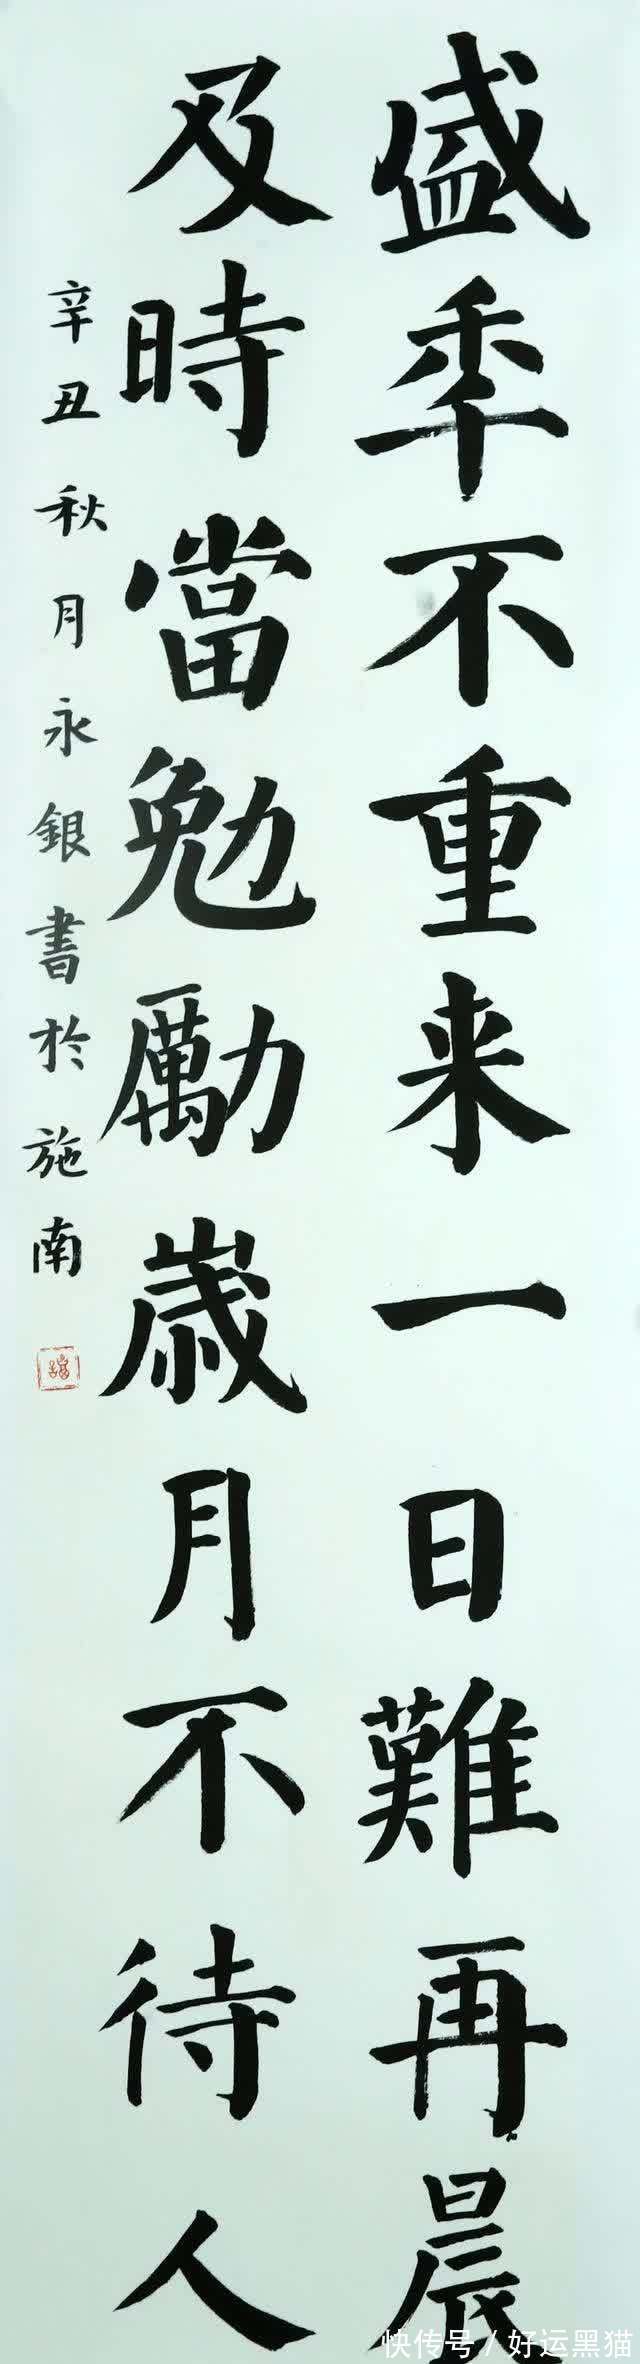 盛年不重来一日難再晨
及時當勉勵歲月不待人
辛丑秋月永銀書於施南
快传号/好运黑猫